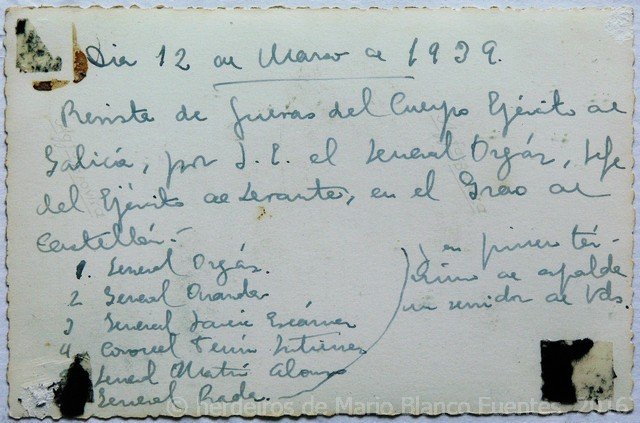 Dia 12 de Marzo de 1939.
Revista de fuerzas del Cuerpo Ejército de
Galicia, por S. E. el General Orgáz, Jefe
del Ejército de Levante, en el Grao de
Castellón.-
1. General Orgáz.
2 General Aranda
3 General García Escámez
4 Coronel Gutierrez
General Martín Alonso
General Prada.
y en primer tér-
mino de espalda
un servidor de Vds.
© herdeiros de Mario Blanco Fuentes, 2016